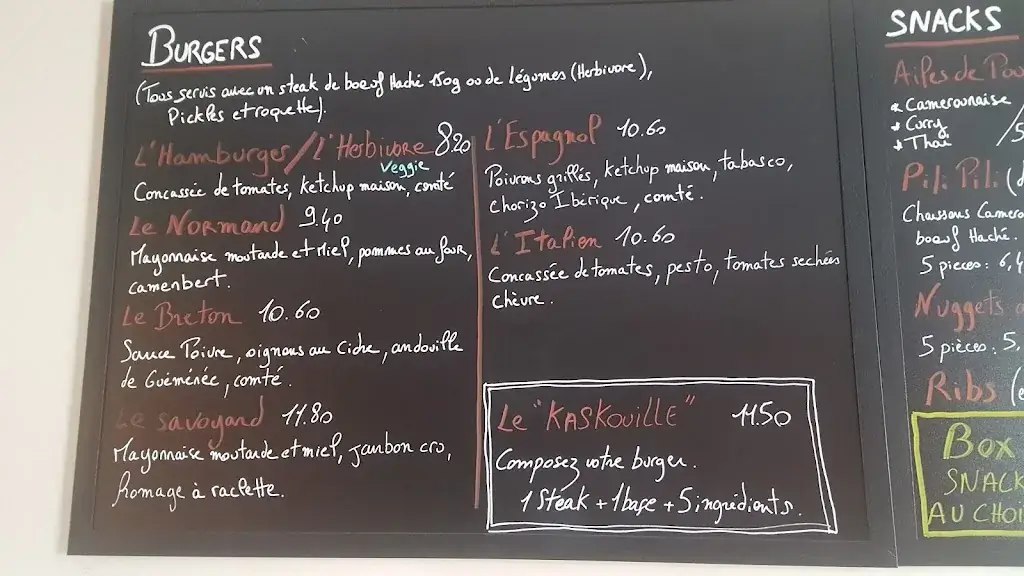 BURGERS
(Tous servis avec un steak de boeuf Haché 150g ou de légumes (Herbivore),
Pickles et roquette).
L'Hamburger/L'Herbivore 8.20
Veggie
Concassée de tomates, ketchup maison, comté
Le Normand 9.40
Mayonnaise moutarde et Miel, pommes au four,
camenbert.
Le Breton 10.60
Sauce Poivre, oignons au Cidre, andouille
de Guémenée, comté.
Le savoyard 11.80
Mayonnaise moutarde et miel, janbon cru,
fromage à raclette.
L'Espagnol 10.60
Poivrons grillés, ketchup maison, tabasco,
chorizo Ibérique, comté.
L'Italien 10.60
Concassée de tomates, pesto, tomates sechées
chèvre.
Le "KASKOUILLE" 11.50
Composez votre burger.
1 Steak + 1 base + 5 ingrédients.
SNACKS
Ailes de Pou
Camerounaise
Curry
Thaï
Pili Pili
Chaussons Camero
boeuf Haché.
5 pieces: 6,4
Nuggets
5 pièces: 5,
Ribs
Box
SNACK
AU CHOI